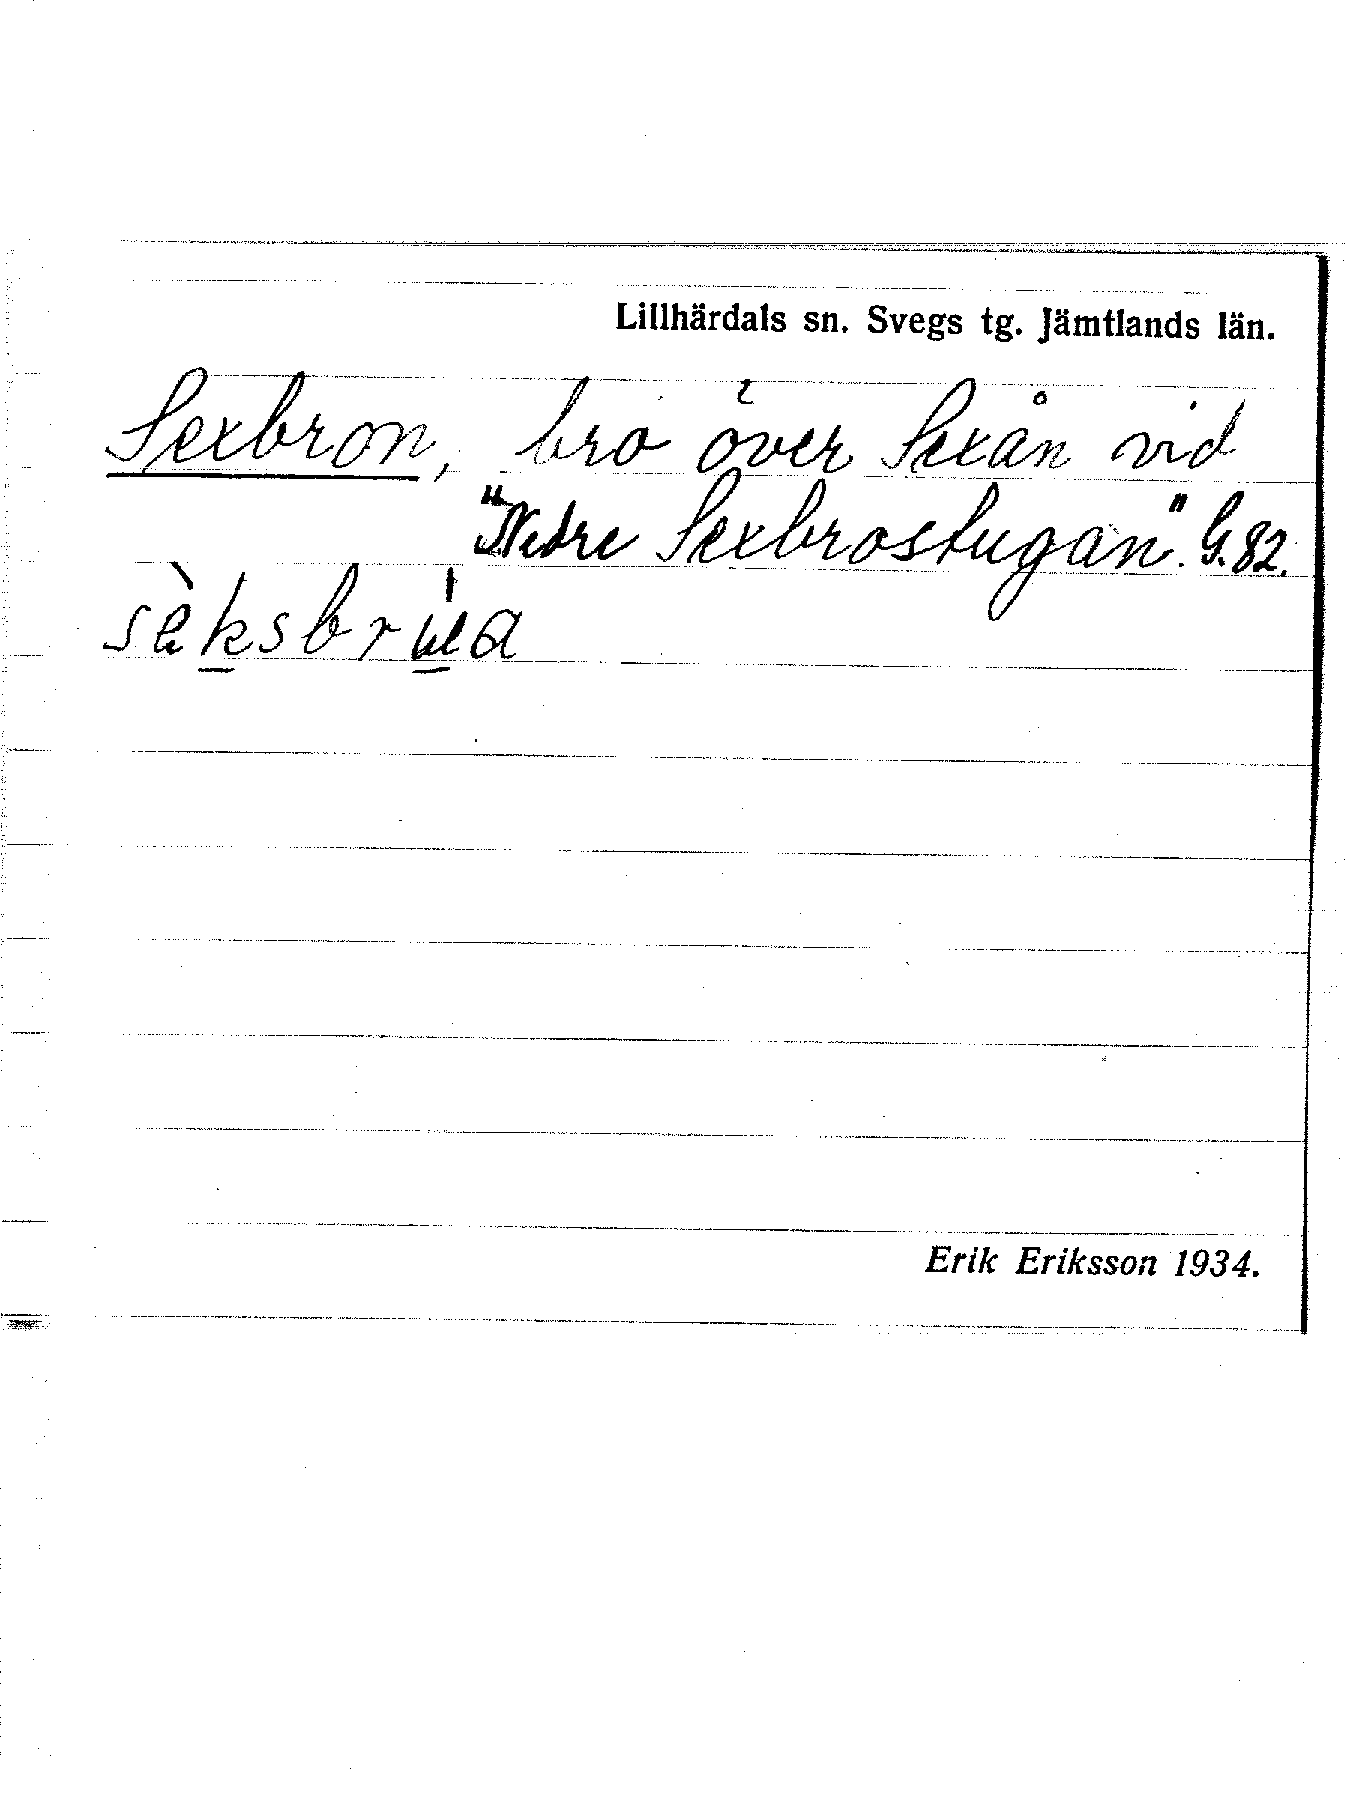 Lillhärdals sn. Svegs tg. Jämtlands län.
Sexbron, bro över Sexån vid
"Nedre Sexbrostugan". G. 82.
Erik Eriksson 1934.